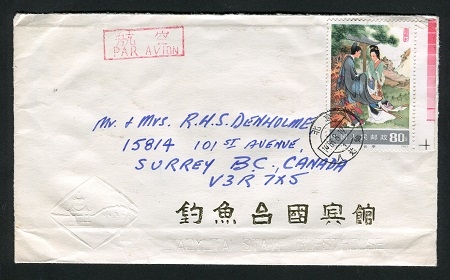 航空
PAR AVION
80
Mr. + Mrs. R.H.S. DENHOLME
15814 101ST AVENUE,
SURREY B.C., CANADA
V3R 7X5
釣魚台國宾館